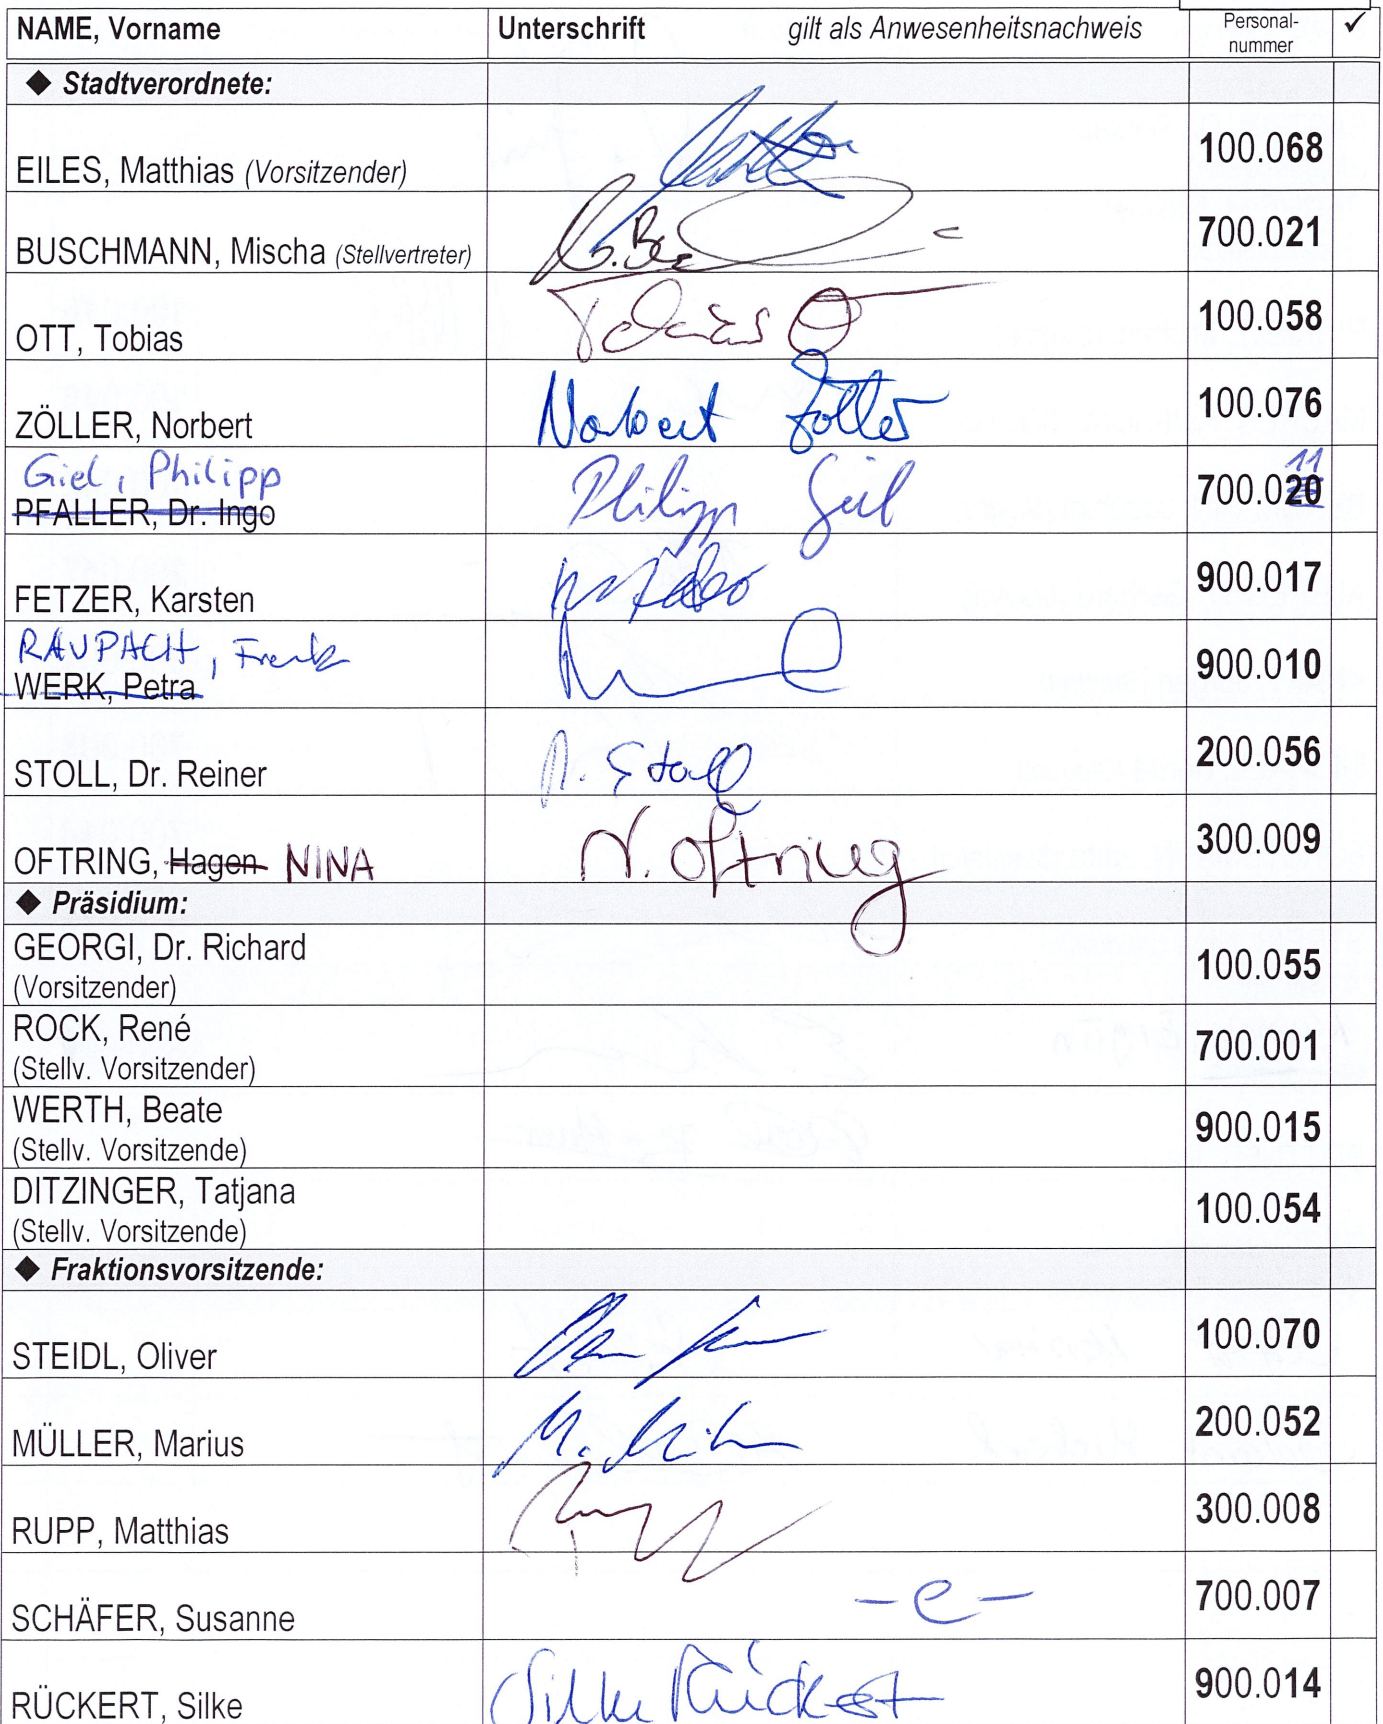 NAME, Vorname Unterschrift gilt als Anwesenheitsnachweis Personal-
nummer ✓
◆ Stadtverordnete:
EILES, Matthias (Vorsitzender) 100.068
BUSCHMANN, Mischa (Stellvertreter) 700.021
OTT, Tobias Tobias O 100.058
ZÖLLER, Norbert Norbert Zöller 100.076
Giel, Philipp Philipp Giel 11
PFALLER, Dr. Ingo 700.020
FETZER, Karsten 900.017
RAUPACH, Frank
WERK, Petra 900.010
STOLL, Dr. Reiner R. Stoll 200.056
OFTRING, Hagen NINA N. Oftring 300.009
◆ Präsidium:
GEORGI, Dr. Richard
(Vorsitzender) 100.055
ROCK, René
(Stellv. Vorsitzender) 700.001
WERTH, Beate
(Stellv. Vorsitzende) 900.015
DITZINGER, Tatjana
(Stellv. Vorsitzende) 100.054
◆ Fraktionsvorsitzende:
STEIDL, Oliver 100.070
MÜLLER, Marius 200.052
RUPP, Matthias 300.008
SCHÄFER, Susanne – e – 700.007
RÜCKERT, Silke Silke Rückert 900.014